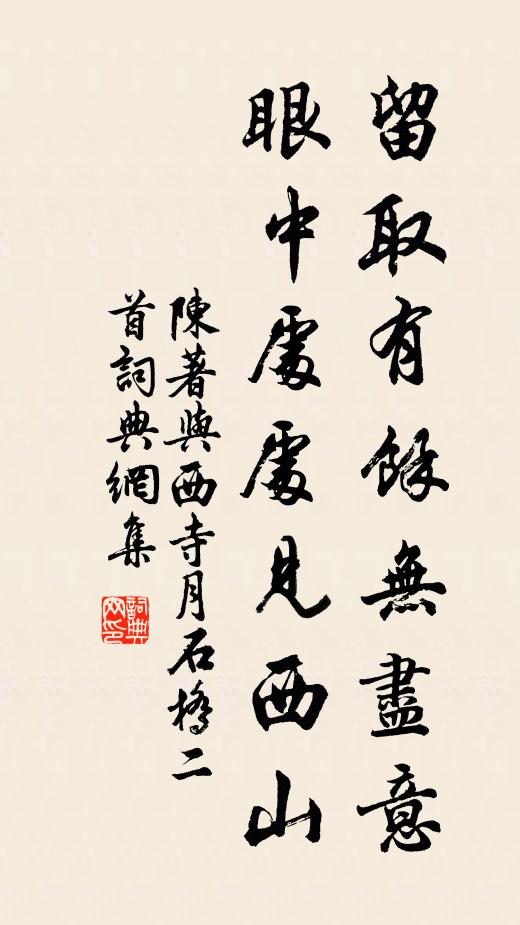 留取有餘無盡意
眼中處處見西山
陳著與西寺月石橋二
首詞典網集
詞典网印